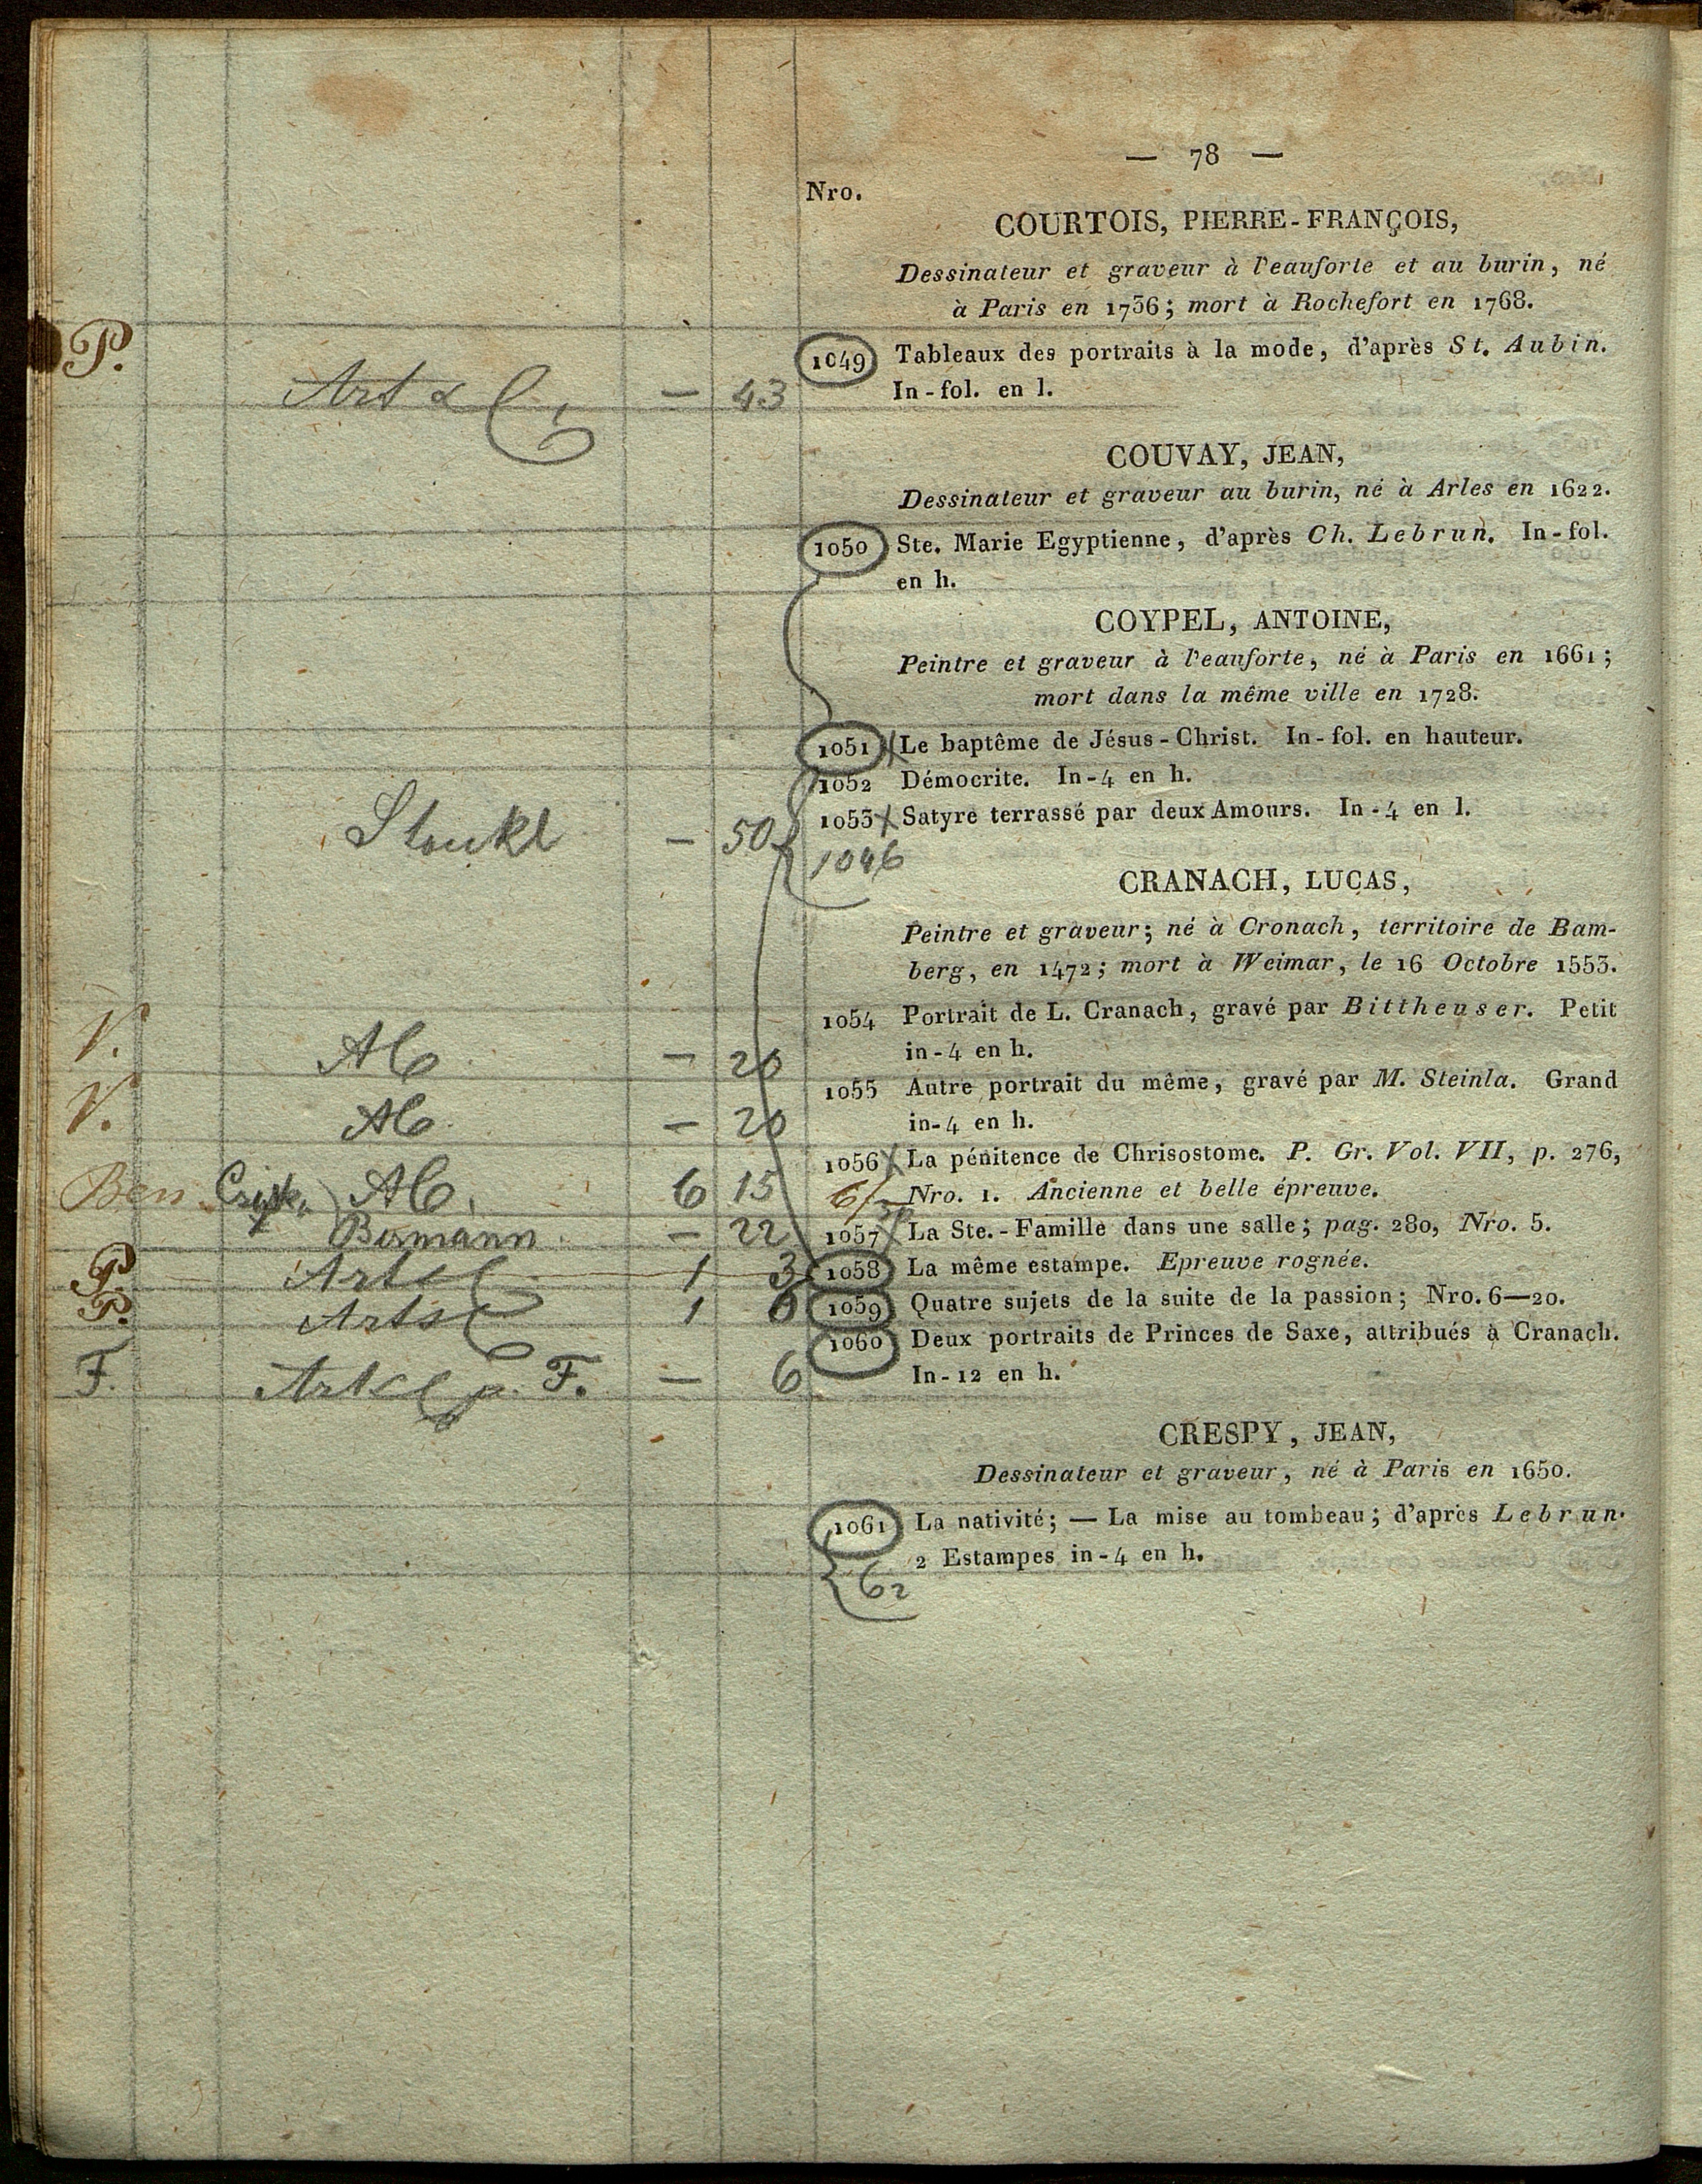 — 78 —
Nro.
COURTOIS, PIERRE-FRANÇOIS,
Dessinateur et graveur à l'eauforte et au burin, né
à Paris en 1736; mort à Rochefort en 1768.
P.
1049 Tableaux des portraits à la mode, d'après St. Aubin.
— 43 In-fol. en l.
COUVAY, JEAN,
Dessinateur et graveur au burin, né à Arles en 1622.
1050 Ste. Marie Egyptienne, d'après Ch. Lebrun. In-fol.
en h.
COYPEL, ANTOINE,
Peintre et graveur à l'eauforte, né à Paris en 1661;
mort dans la même ville en 1728.
1051 Le baptême de Jésus-Christ. In-fol. en hauteur.
1052 Démocrite. In-4 en h.
1053 Satyre terrassé par deux Amours. In-4 en l.
— 50 1046
CRANACH, LUCAS,
Peintre et graveur; né à Cronach, territoire de Bam-
berg, en 1472; mort à Weimar, le 16 Octobre 1553.
1054 Portrait de L. Cranach, gravé par Bittheuser. Petit
V. — 20 in-4 en h.
1055 Autre portrait du même, gravé par M. Steinla. Grand
V. — 20 in-4 en h.
1056 La pénitence de Chrisostome. P. Gr. Vol. VII, p. 276,
Ben 6 15 Nro. 1. Ancienne et belle épreuve.
— 22 1057 La Ste.-Famille dans une salle; pag. 280, Nro. 5.
P. 1 3 1058 La même estampe. Epreuve rognée.
P. 1 6 1059 Quatre sujets de la suite de la passion; Nro. 6—20.
1060 Deux portraits de Princes de Saxe, attribués à Cranach.
F. F. — 6 In-12 en h.
CRESPY, JEAN,
Dessinateur et graveur, né à Paris en 1650.
1061 La nativité; — La mise au tombeau; d'après Lebrun.
2 Estampes in-4 en h.
62